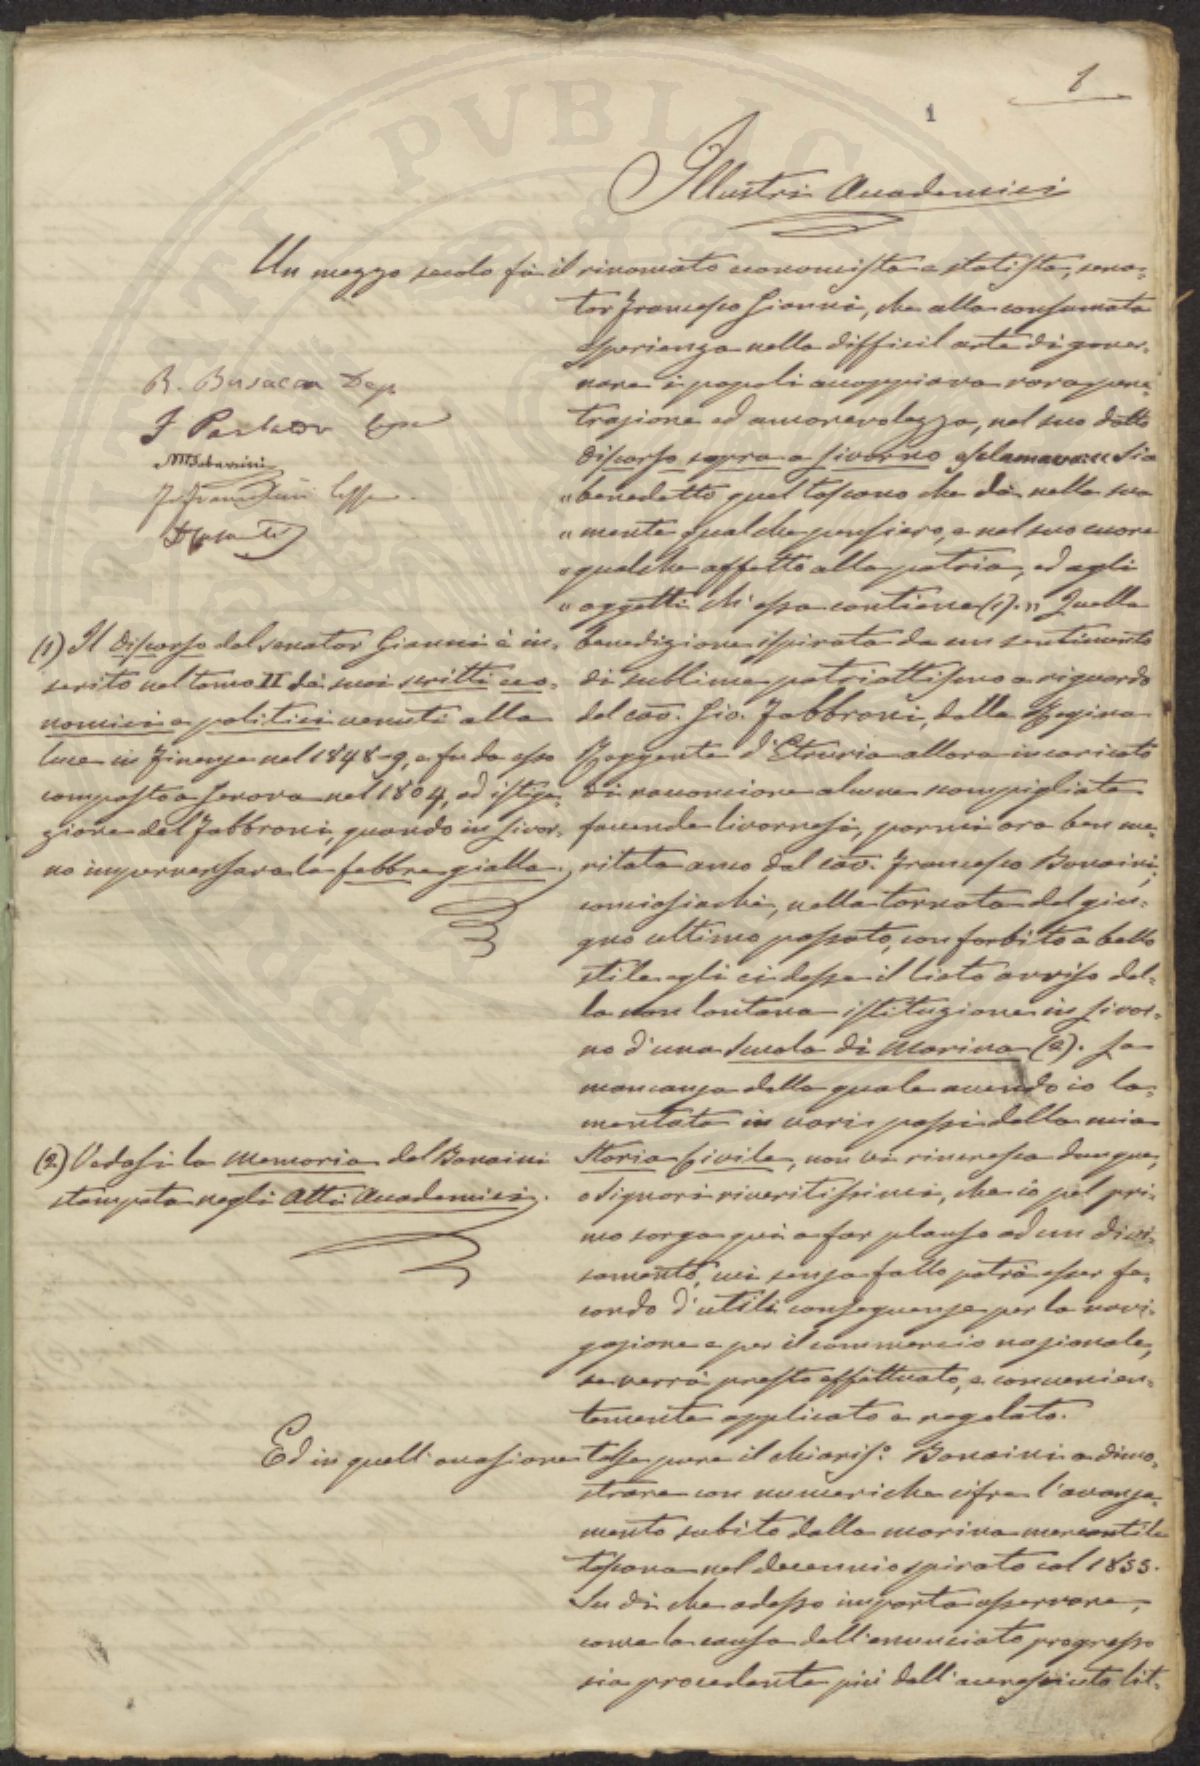 1
1
Illustri Accademici
Un mezzo secolo fà il rinomato economista e statista, sena-
tor Francesco Gianni, che alla consumata
esperienza nella difficil arte di gover-
nare i popoli accoppiava rara pene-
trazione ed amorevolezza, nel suo dotto
discorso sopra a Livorno esclamava: "Sia
"benedetto quel toscano che dà nella sua
"mente qualche pensiero, e nel suo cuore
"qualche affetto alla patria, ed agli
"oggetti ch'essa contiene (1)." Quella
benedizione ispirata da un sentimento
di sublime patriottismo a riguardo
del cav. Gio. Fabbroni, dalla Regina
Reggente d'Etruria allora incaricato
di racconciare alcune scompigliate
faccende livornesi, parmi ora ben me-
ritata anco dal cav. Francesco Bonaini,
conciosiachè, nella tornata del giu-
gno ultimo passato, con forbito e bello
stile egli ci desse il lieto avviso del-
la non lontana istituzione in Livor-
no d'una Scuola di Marina (2). La
mancanza della quale avendo io la-
mentata in varii passi della mia
Storia Civile, non vi rincresca dunque,
o Signori riveritissimi, che io pel pri-
mo sorga qui a far plauso ad un divi-
samento, cui senza fallo potrà esser fe-
condo d'utili conseguenze per la navi-
gazione e per il commercio nazionale,
se verrà presto effettuato, e convenien-
temente applicato e regolato.
Ed in quell'occasione tolse pure il chiariss.o Bonaini a dimo-
strare con numeriche cifre l'avanza-
mento subito dalla marina mercantile
toscana nel decennio spirato col 1855.
Su di che adesso importa osservare,
come la causa dell'enunciato progresso
sia procedente più dall'accresciuto lit-
R. Busacca Dep.
(1) Il discorso del senator Gianni è in-
serito nel tomo II dei suoi scritti eco-
nomici e politici venuti alla
luce in Firenze nel 1848-9, e fu da esso
composto a Genova nel 1804, ad istiga-
zione del Fabbroni, quando in Livor-
no imperversava la febbre gialla.
(2) Vedasi la Memoria del Bonaini
stampata negli Atti Accademici.